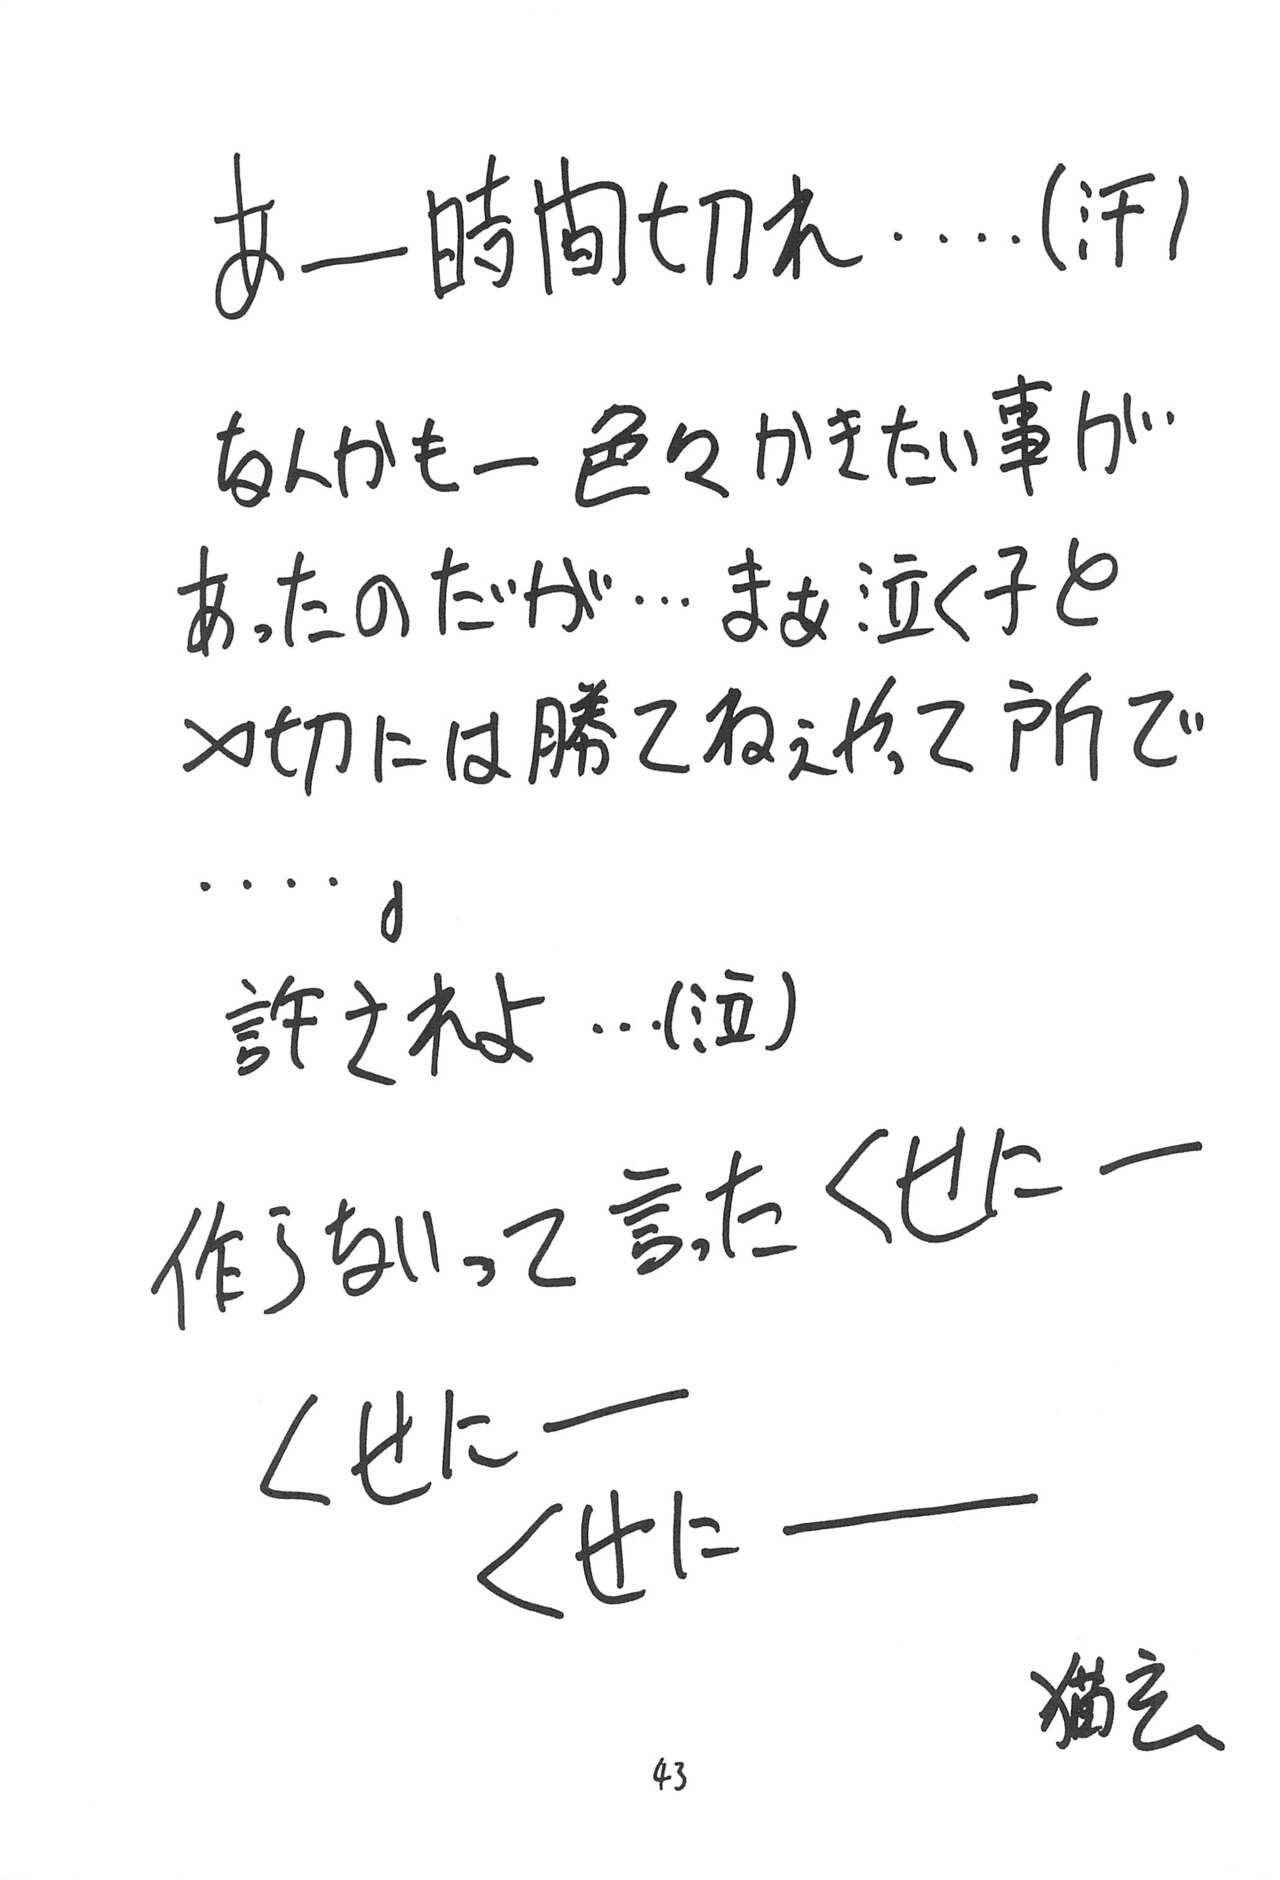 あー時間切れ.....(汗)
なんかも一色々かきたい事が
あったのだが…まぁ泣く子と
〆切には勝てねぇやって所で
....。
許されよ…(泣)
作らないって言ったくせにー
くせにー
くせにー
猫玄
43